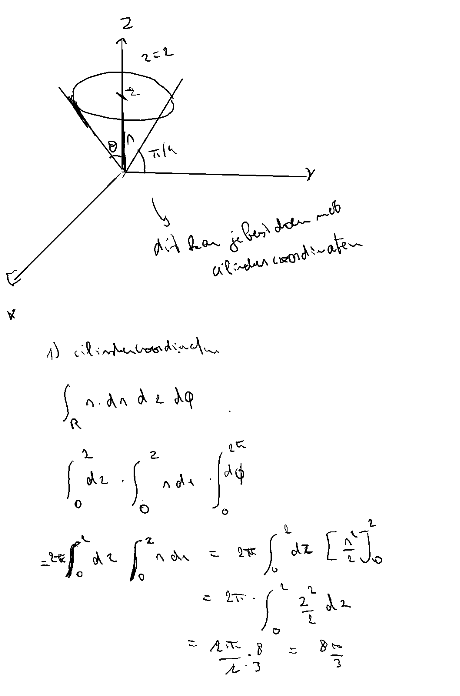 z
z = 2
2
θ r π/4
y
dit kan je best doen met
cilindercoordinaten
x
1) cilindercoordinaten
∫_R r · dr dz dφ
∫_0^2 dz · ∫_0^z r dr · ∫_0^{2π} dφ
= 2π ∫_0^2 dz ∫_0^z r dr = 2π ∫_0^2 dz [r²/2]_0^z
= 2π · ∫_0^2 z²/2 dz
= 2π/2 · 8/3 = 8π/3